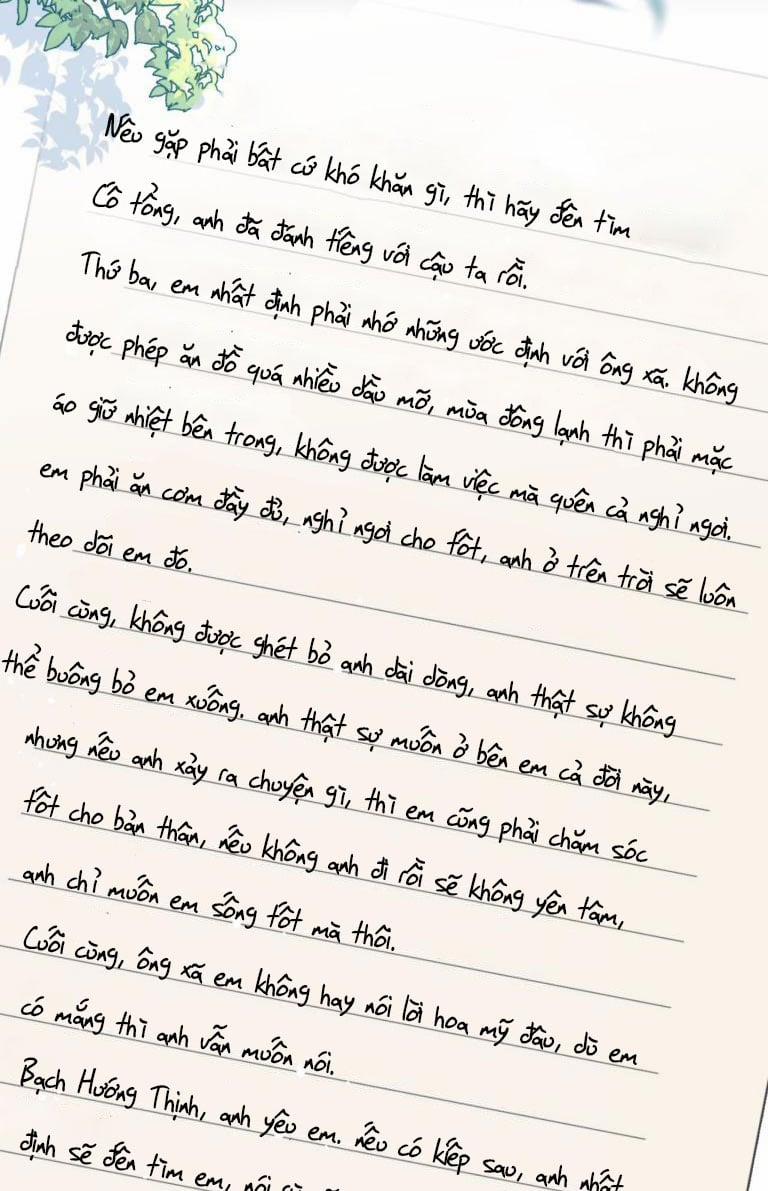 Nếu gặp phải bất cứ khó khăn gì, thì hãy đến tìm
Cố tổng, anh đã đánh tiếng với cậu ta rồi.
Thứ ba, em nhất định phải nhớ những ước định với ông xã. không
được phép ăn đồ quá nhiều dầu mỡ, mùa đông lạnh thì phải mặc
áo giữ nhiệt bên trong, không được làm việc mà quên cả nghỉ ngơi.
em phải ăn cơm đầy đủ, nghỉ ngơi cho tốt, anh ở trên trời sẽ luôn
theo dõi em đó.
Cuối cùng, không được ghét bỏ anh dài dòng, anh thật sự không
thể buông bỏ em xuống. anh thật sự muốn ở bên em cả đời này,
nhưng nếu anh xảy ra chuyện gì, thì em cũng phải chăm sóc
tốt cho bản thân, nếu không anh đi rồi sẽ không yên tâm,
anh chỉ muốn em sống tốt mà thôi.
Cuối cùng, ông xã em không hay nói lời hoa mỹ đâu, dù em
có mắng thì anh vẫn muốn nói.
Bạch Hướng Thịnh, anh yêu em. nếu có kiếp sau, anh nhất
định sẽ đến tìm em,